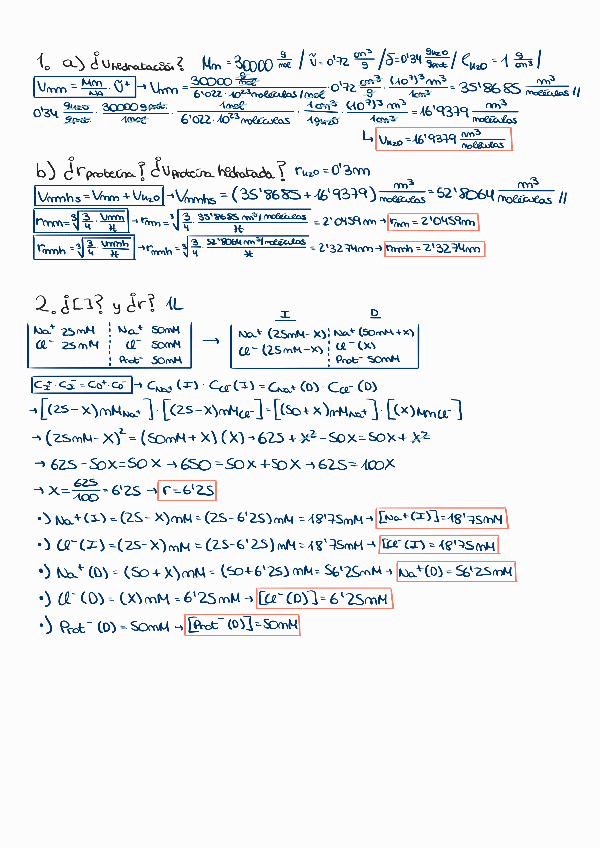 1. a) ¿Vhidratación? Mm = 30000 g/mol / Ṽ = 0'72 cm³/g / δ = 0'34 gH2O/gprot / ρH2O = 1 g/cm³ /
Vmm = Mm/NA · Ṽ⁺ → Vmm = 30000 g/mol / 6'022 · 10²³ moléculas/mol · 0'72 cm³/g · (10⁷)³ nm³/1cm³ = 35'8685 nm³/moléculas //
0'34 gH2O/gprot · 30000 gprot/1mol · 1mol/6'022 · 10²³ moléculas · 1cm³/1gH2O · (10⁷)³ nm³/1cm³ = 16'9379 nm³/moléculas
↳ VH2O = 16'9379 nm³/moléculas
b) ¿rproteína? ¿Vproteína hidratada? rH2O = 0'3nm
Vmmhs = Vmm + VH2O → Vmmhs = (35'8685 + 16'9379) nm³/moléculas = 52'8064 nm³/moléculas //
rmm = ³√(3/4 · Vmm/π) → rmm = ³√(3/4 · 35'8685 nm³/moléculas/π) = 2'0459nm → rmm = 2'0459nm
rmmh = ³√(3/4 · Vmmh/π) → rmmh = ³√(3/4 · 52'8064 nm³/moléculas/π) = 2'3274nm → rmmh = 2'3274nm
2. ¿[]? y ¿r? 1L
I D
Na⁺ 25mM Na⁺ 50mM → Na⁺ (25mM-X) Na⁺ (50mM+X)
Cl⁻ 25mM Cl⁻ 50mM Cl⁻ (25mM-X) Cl⁻ (X)
Prot⁻ 50mM Prot⁻ 50mM
CI⁺ · CI⁻ = CD⁺ · CD⁻ → CNa⁺ (I) · CCl⁻ (I) = CNa⁺ (D) · CCl⁻ (D)
→ [(25-X)mM Na⁺] · [(25-X)mM Cl⁻] = [(50+X)mM Na⁺] · [(X)mM Cl⁻]
→ (25mM-X)² = (50mM+X) (X) → 625 + X² - 50X = 50X + X²
→ 625 - 50X = 50X → 650 = 50X + 50X → 625 = 100X
→ X = 625/100 = 6'25 → r = 6'25
•) Na⁺ (I) = (25-X)mM = (25-6'25)mM = 18'75mM → [Na⁺ (I)] = 18'75mM
•) Cl⁻ (I) = (25-X)mM = (25-6'25)mM = 18'75mM → [Cl⁻ (I) = 18'75mM
•) Na⁺ (D) = (50+X)mM = (50+6'25)mM = 56'25mM → Na⁺ (D) = 56'25mM
•) Cl⁻ (D) = (X)mM = 6'25mM → [Cl⁻ (D)] = 6'25mM
•) Prot⁻ (D) = 50mM → [Prot⁻ (D)] = 50mM